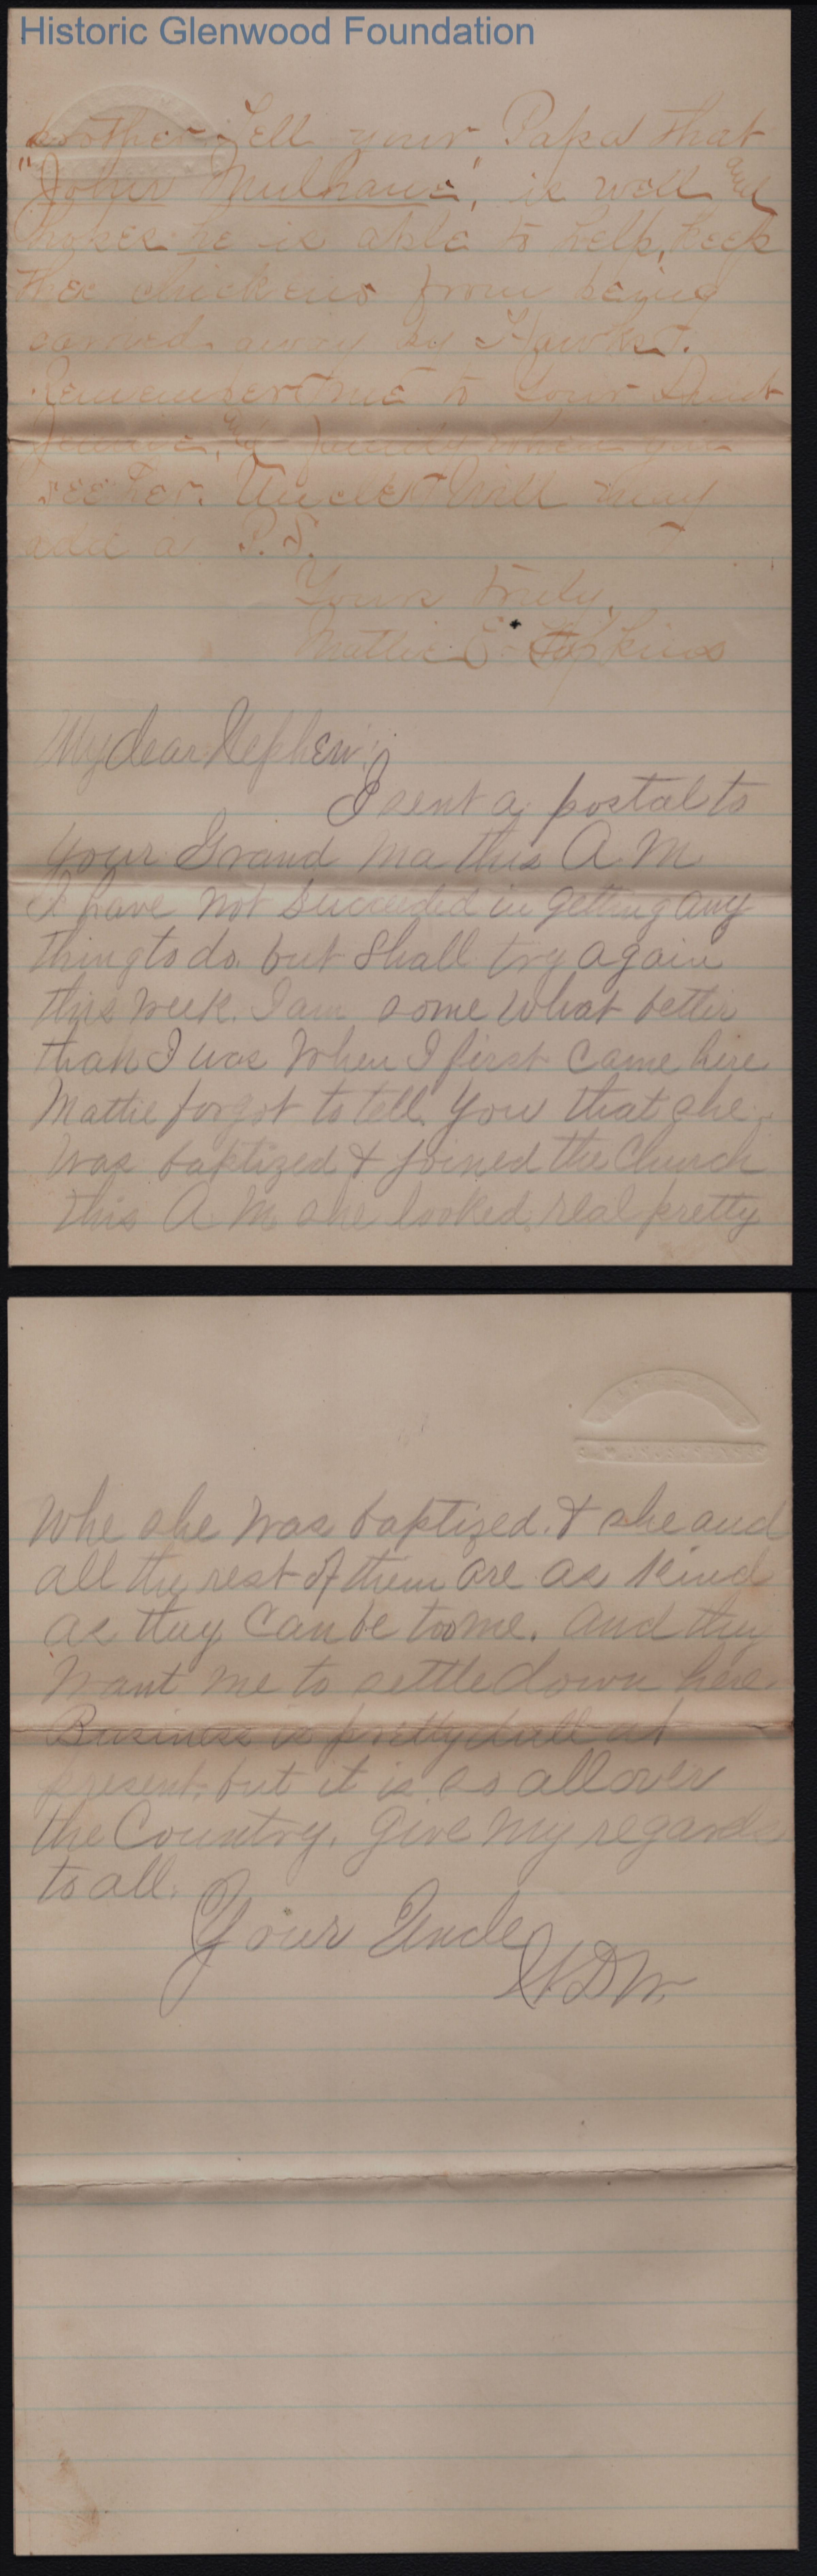 Historic Glenwood Foundation
brother. Tell your Papa that
"John Mulhane", is well and
hopes he is able to help, keep
the chickens from being
carried away by Hawks.
Remember me to Your Aunt
Jennie, and family when you
see her. Uncle Will may
add a P.S.
Yours truly,
Mattie E. Hopkins
My dear Nephew;
I sent a postal to
your Grand Ma this A.M.
I have not succeeded in getting any
thing to do. but Shall try again
this week. I am some what better
than I was When I first came here
Mattie forgot to tell you that she
was baptized & joined the Church
this A M she looked real pretty
Whe she was baptized. & she and
all the rest of them are as kind
as they can be too me. and they
want me to settle down here
Business is pretty dull at
present, but it is so all over
the Country. Give my regards
to all.
Your Uncle
W.D.W.